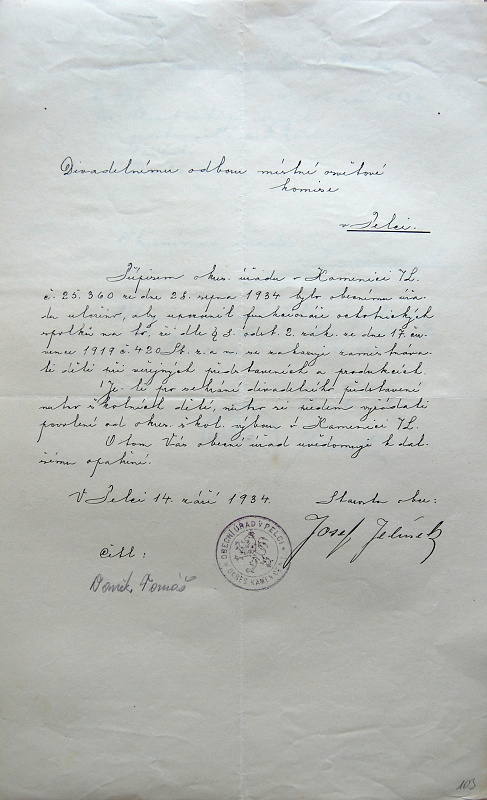 Divadelnému odboru místné osvětové
komise
v Pelci.
Přípisem okres. úřadu v Kamenici n/L.
č. 25.360 ze dne 28. srpna 1934 bylo obecnímu úřa-
du uloženo, aby upozornil funkcionáře ochotnických
spolků na to, že dle § 8. odst. 2. zák. ze dne 17. čer-
vence 1919 č. 420 Sb. z. a n. se zakazuje zaměstnáva-
ti děti při veřejných představeních a produkcích.
Je-li pro sehrání divadelního představení
nutno školních dětí, nutno si předem vyžádati
povolení od okres. škol. výboru v Kamenici n/L.
O tom Vás obecní úřad uvědomuje k dal-
šímu opatření.
V Pelci 14. září 1934.
Starosta obce:
Josef Jelínek
OBECNÍ ÚŘAD V PELCI
OKRES KAMENICE
Četl:
Tomáš
103